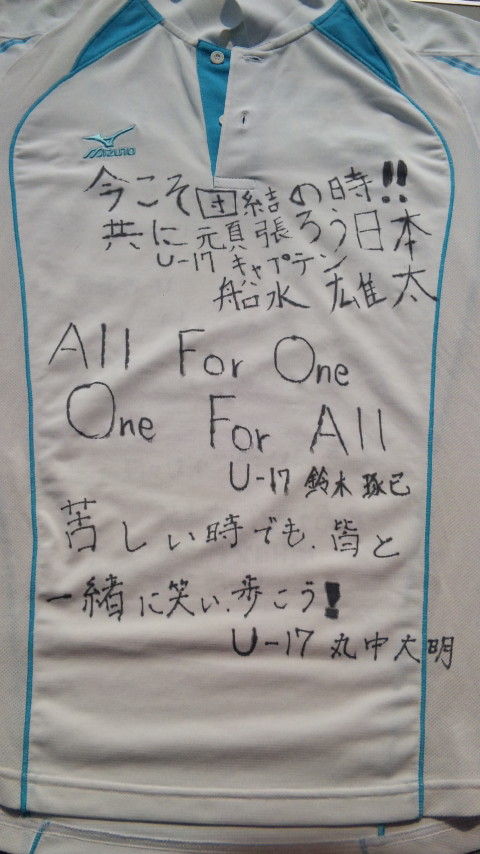 MIZUNO
今こそ団結の時!!
共に頑張ろう日本
U-17 キャプテン
船水 雄太
All For One
One For All
U-17 鈴木 琢巳
苦しい時でも、皆と
一緒に笑い、歩こう!
U-17 丸中大明